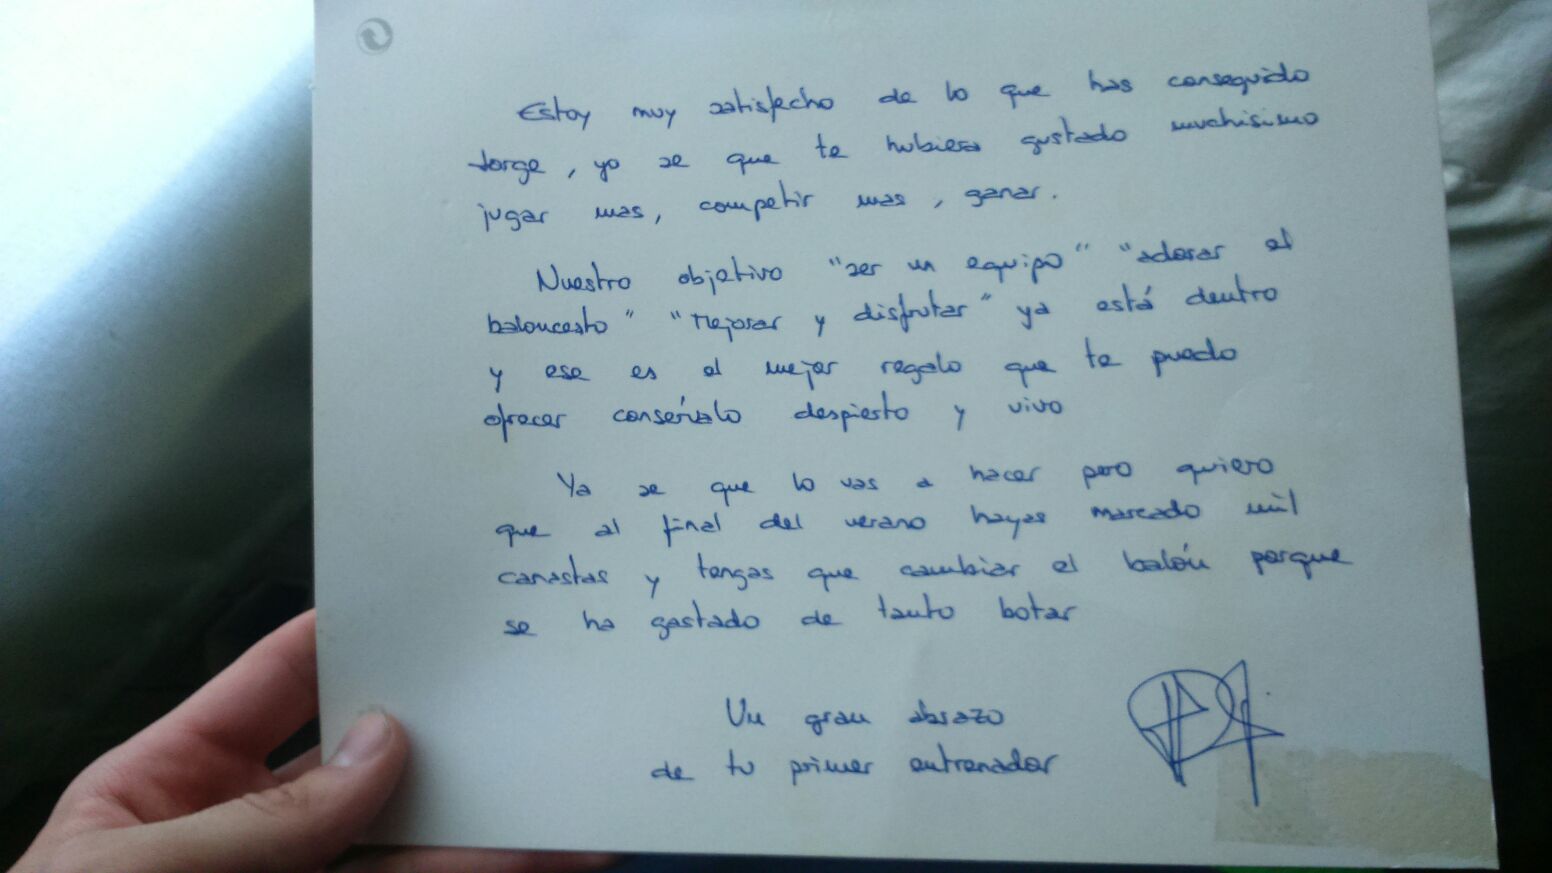 Estoy muy satisfecho de lo que has conseguido
Jorge, yo se que te hubiera gustado muchisimo
jugar mas, competir mas, ganar.
Nuestro objetivo "ser un equipo" "adorar el
baloncesto" "Mejorar y disfrutar" ya está dentro
y ese es el mejor regalo que te puedo
ofrecer consérvalo despierto y vivo
Ya se que lo vas a hacer pero quiero
que al final del verano hayas marcado mil
canastas y tengas que cambiar el balón porque
se ha gastado de tanto botar
Un gran abrazo
de tu primer entrenador